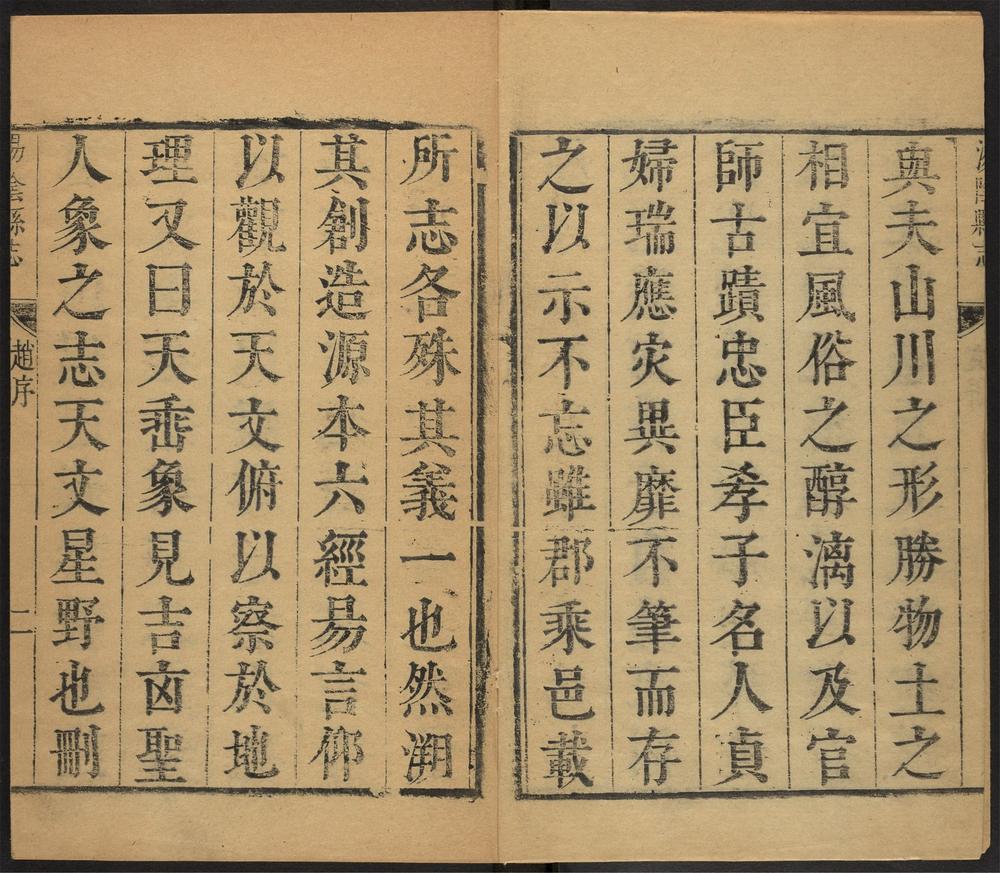 輿夫山川之形勝物土之
相宜風俗之醇漓以及官
師古蹟忠臣孝子名人貞
婦瑞應灾異靡不筆而存
之以示不忘雖郡乘邑載
所志各殊其義一也然溯
其創造源本六經易言仰
以觀於天文俯以察於地
理又曰天垂象見吉凶聖
人象之志天文星野也刪
湯陰縣志
趙序
二